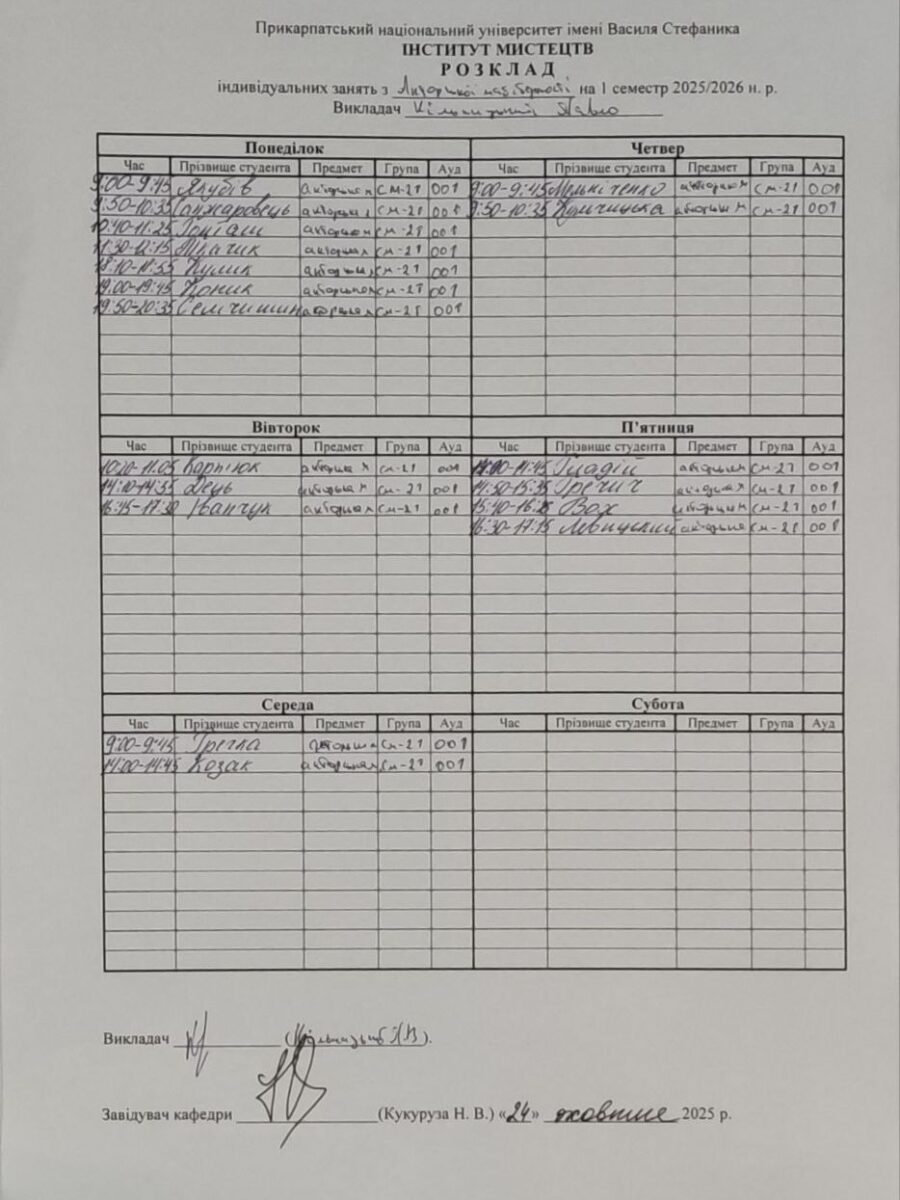 Прикарпатський національний університет імені Василя Стефаника
ІНСТИТУТ МИСТЕЦТВ
РОЗКЛАД
індивідуальних занять з Акторської майстерності на 1 семестр 2025/2026 н. р.
Викладач
Понеділок
Час Прізвище студента Предмет Група Ауд
9:00-9:45 Якубів акторська СМ-21 001
9:50-10:35 Санжаровець акторська СМ-21 001
10:40-11:25 акторська СМ-21 001
11:30-12:15 Ткачик акторська СМ-21 001
18:10-18:55 Кулик акторська СМ-21 001
19:00-19:45 Коник акторська СМ-21 001
19:50-20:35 Семчишин акторська СМ-21 001
Четвер
Час Прізвище студента Предмет Група Ауд
9:00-9:45 акторська СМ-21 001
9:50-10:35 акторська СМ-21 001
Вівторок
Час Прізвище студента Предмет Група Ауд
10:20-11:05 Карпюк акторська СМ-21 001
14:10-14:55 День акторська СМ-21 001
16:45-17:30 Іванчук акторська СМ-21 001
П'ятниця
Час Прізвище студента Предмет Група Ауд
14:00-14:45 Гладій акторська СМ-21 001
14:50-15:35 Гречич акторська СМ-21 001
15:40-16:25 Вох акторська СМ-21 001
16:30-17:15 Левицький акторська СМ-21 001
Середа
Час Прізвище студента Предмет Група Ауд
9:00-9:45 Гречка акторська СМ-21 001
14:00-14:45 Козак акторська СМ-21 001
Субота
Час Прізвище студента Предмет Група Ауд
Викладач
Завідувач кафедри (Кукуруза Н. В.) «24» жовтня 2025 р.